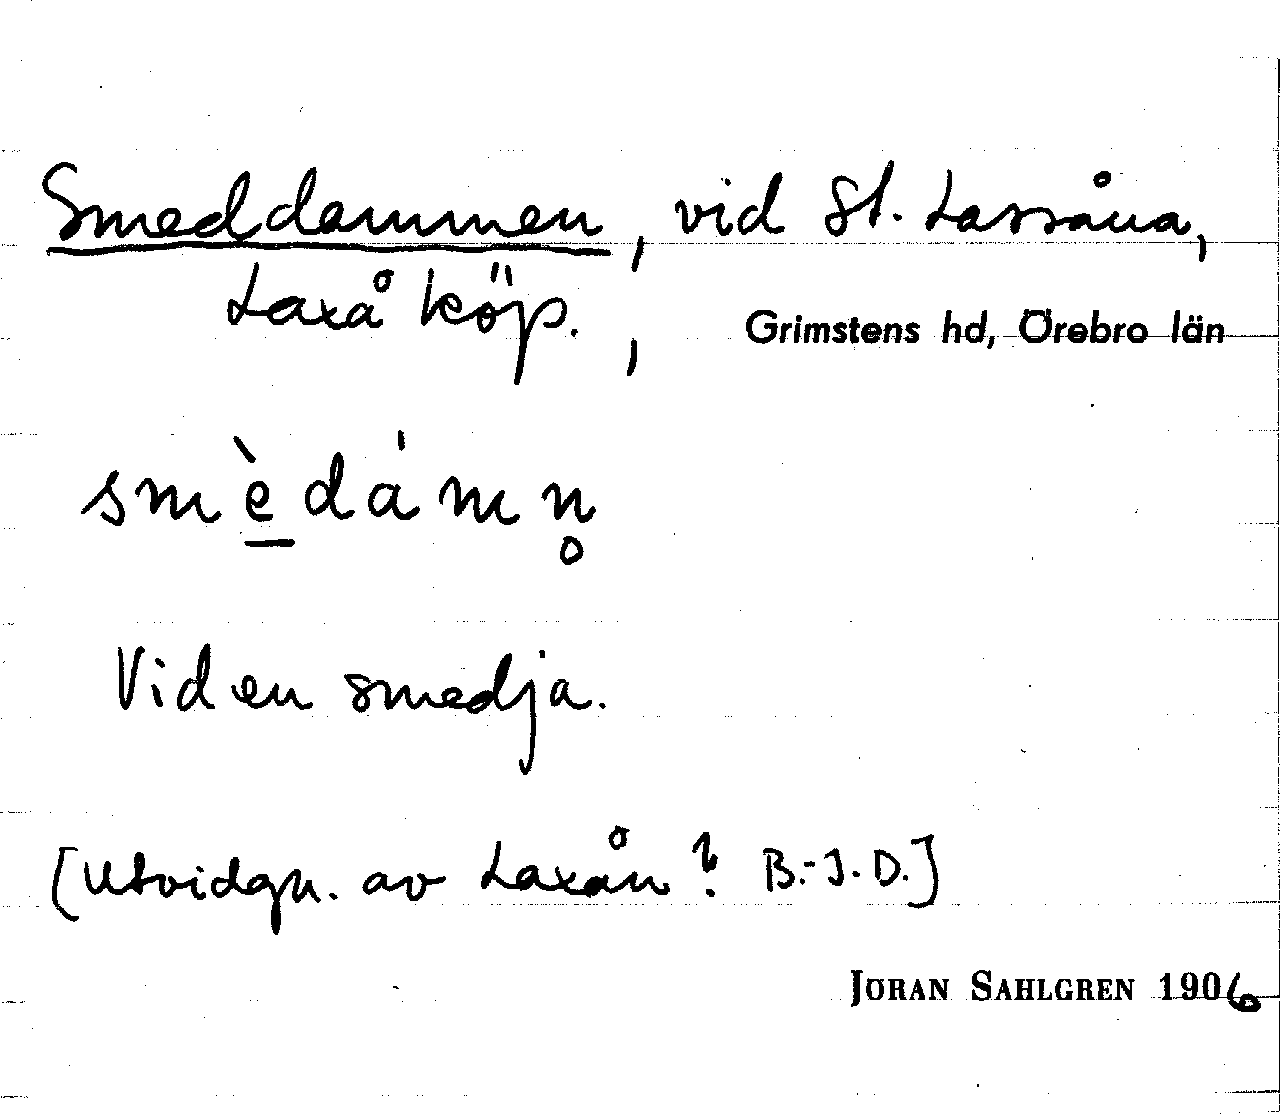 Smeddammen, vid St. Lassåna,
Laxå köp., Grimstens hd, Örebro län
smè̱dám n̥
Vid en smedja.
[Utvidgn. av Laxån? B.-J.D.]
JÖRAN SAHLGREN 1906